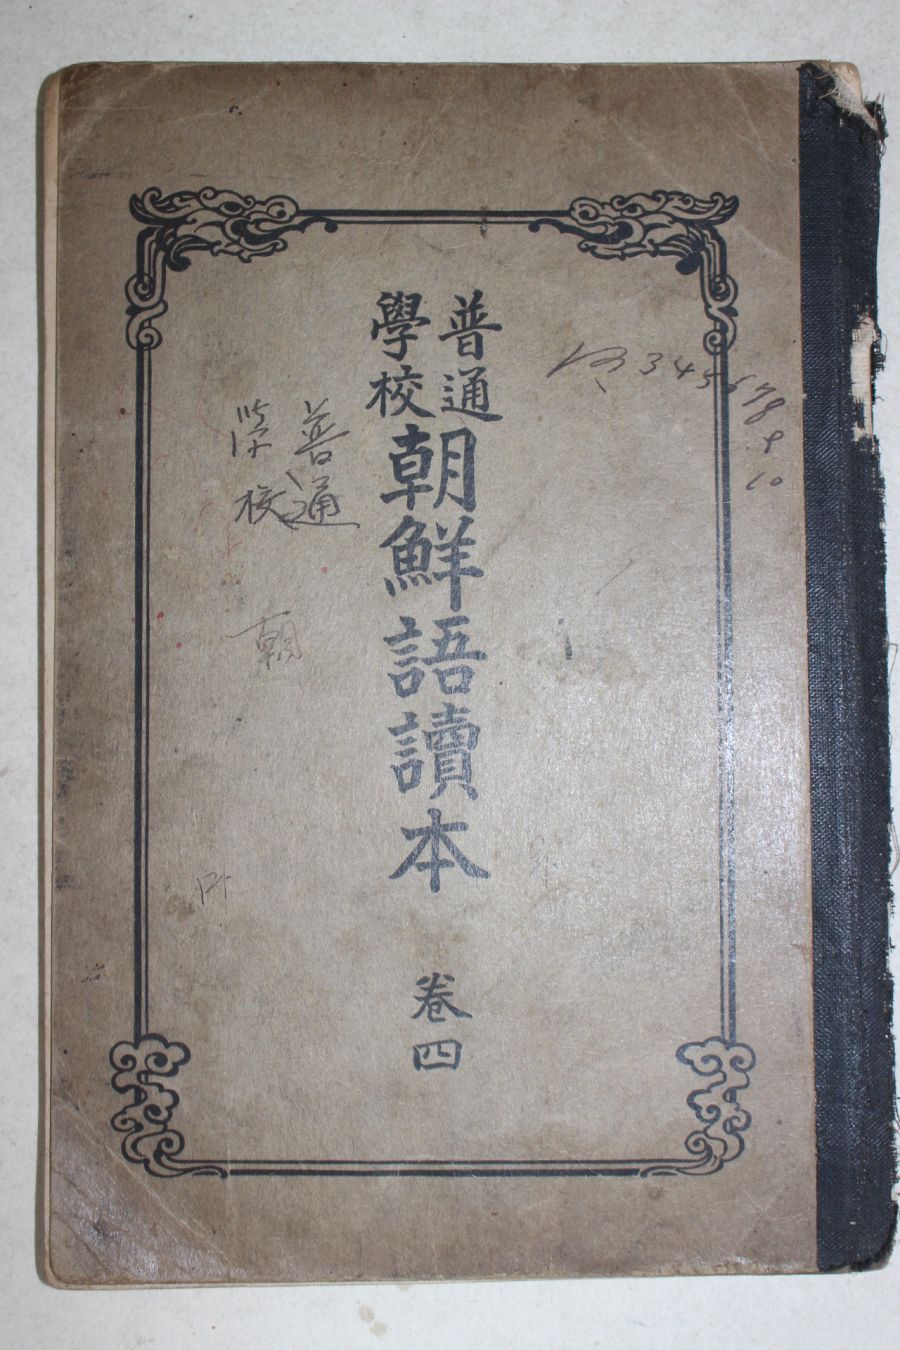 普通
學校
朝鮮語讀本
卷四
3 4 5 6 7 8 9 10
普通
学校
朝